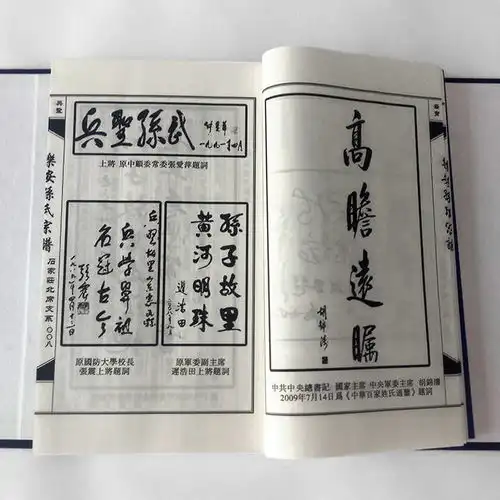 高瞻遠矚
胡錦濤
中共中央總書記 國家主席 中央軍委主席 胡錦濤
2009年7月14日爲《中華百家姓氏通鑒》題詞
兵聖孫武
一九九一年四月
上將 原中顧委常委張愛萍題詞
孫子故里
黃河明珠
遲浩田
原軍委副主席
遲浩田上將題詞
兵學鼻祖
名冠古今
原國防大學校長
張震上將題詞
兵聖
樂安孫氏宗譜
石家莊北席支系
〇〇八